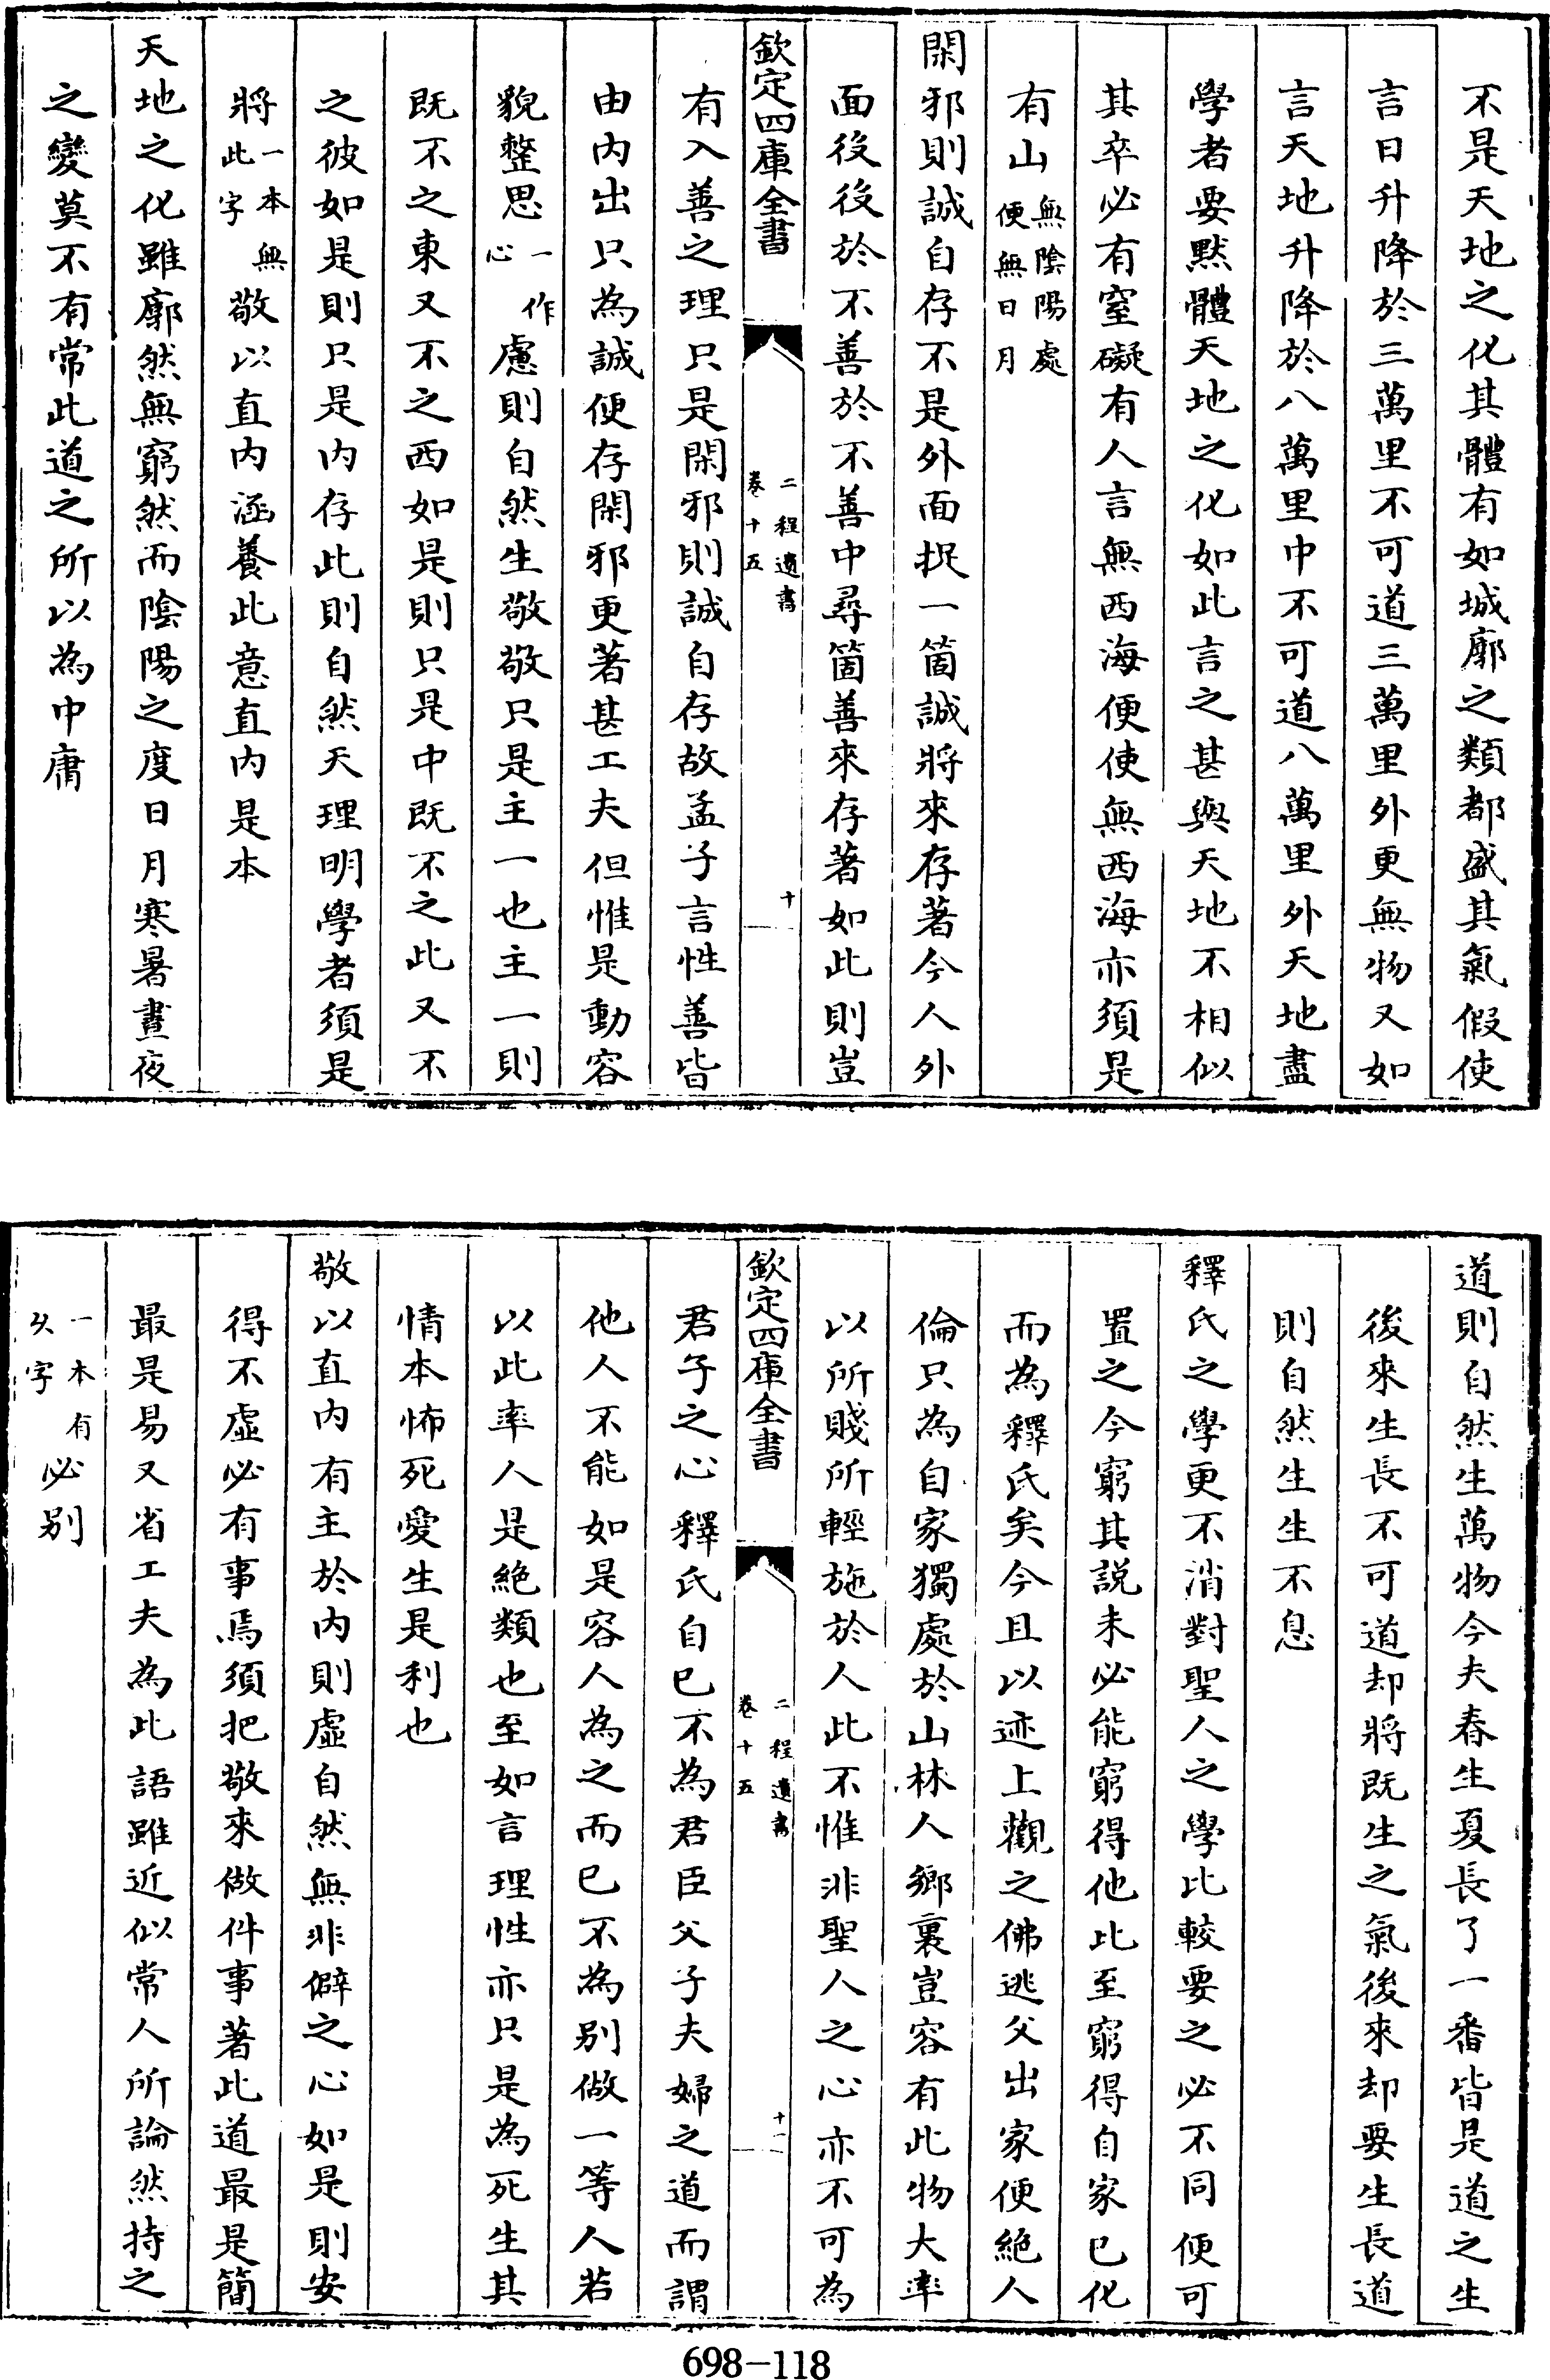 不是天地之化其體有如城廓之類都盛其氣假使
言日升降於三萬里不可道三萬里外更無物又如
言天地升降於八萬里中不可道八萬里外天地盡
學者要默體天地之化如此言之甚與天地不相似
其卒必有窒礙有人言無西海便使無西海亦須是
有山無陰陽處便無日月
閑邪則誠自存不是外面捉一箇誠將來存著今人外
面役役於不善於不善中尋箇善來存著如此則豈
欽定四庫全書
二程遺書
卷十五
十
有入善之理只是閑邪則誠自存故孟子言性善皆
由内出只為誠便存閑邪更著甚工夫但惟是動容
貌整思一作心慮則自然生敬敬只是主一也主一則
既不之東又不之西如是則只是中既不之此又不
之彼如是則只是内存此則自然天理明學者須是
將一本無此字敬以直内涵養此意直内是本
天地之化雖廓然無窮然而陰陽之度日月寒暑晝夜
之變莫不有常此道之所以為中庸
道則自然生萬物今夫春生夏長了一番皆是道之生
後來生長不可道却將既生之氣後來却要生長道
則自然生生不息
釋氏之學更不消對聖人之學比較要之必不同便可
置之今窮其説未必能窮得他比至窮得自家已化
而為釋氏矣今且以迹上觀之佛逃父出家便絶人
倫只為自家獨處於山林人鄉裏豈容有此物大率
以所賤所輕施於人此不惟非聖人之心亦不可為
欽定四庫全書
二程遺書
卷十五
十一
君子之心釋氏自己不為君臣父子夫婦之道而謂
他人不能如是容人為之而已不為别做一等人若
以此率人是絶類也至如言理性亦只是為死生其
情本怖死愛生是利也
敬以直内有主於内則虚自然無非僻之心如是則安
得不虚必有事焉須把敬來做件事著此道最是簡
最是易又省工夫為此語雖近似常人所論然持之
一本有久字必别
698-118